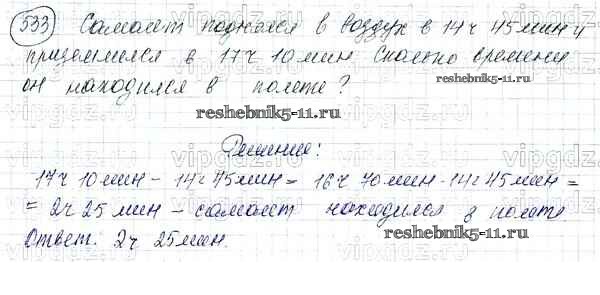 533 Самолет поднялся в воздух в 14ч 45мин и
приземлился в 17ч 10мин Сколько времени
он находился в полете?
reshebnik5-11.ru
Решение:
17ч 10мин - 14ч 45мин = 16ч 70мин - 14ч 45мин =
= 2ч 25 мин - самолет находился в полете
Ответ: 2ч 25мин.
reshebnik5-11.ru